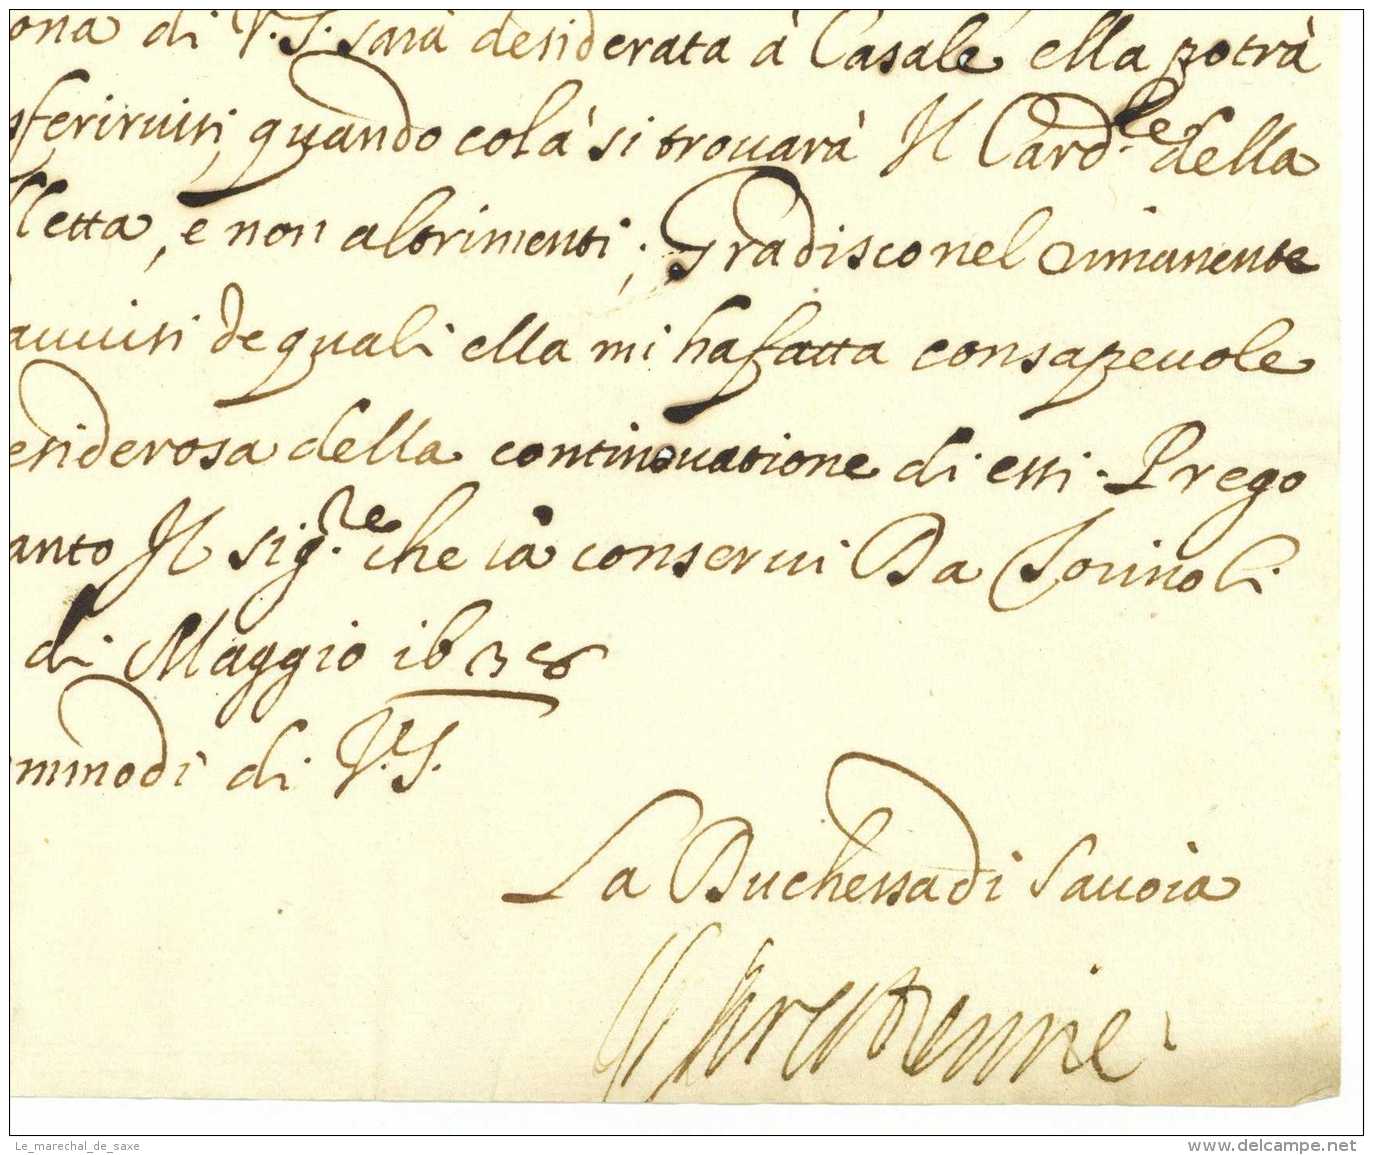 ona di V.S. sarà desiderata à Casale ella potrà
sferiruisi, quando colà si trouarà Il Card.le della
lletta, e non altrimenti; Gradisco nel rimanente
auuisi de quali ella mi ha fatta consapeuole
esiderosa della continouatione di essi. Prego
anto Il Sig.re che la conserui Da Torino li
di Maggio 1638
ommodi di V.S.
La Duchessa di Sauoia
Chrestienne
Le_marechal_de_saxe
www.delcampe.net